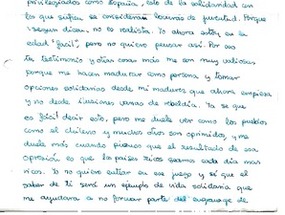 privilegiados como España, esto de la solidaridad con
los que sufren se consideran locuras de juventud. Porque
según dicen, no es realista. Yo ahora estoy en la
edad "fácil", pero no quiero pensar así. Por eso
tu testimonio y otras cosas más me son muy valiosas
porque me hacen madurar como persona y tomar
opciones solidarias desde mi madurez que ahora empieza
y no desde ilusiones vanas de rebeldía. Ya se que
es fácil decir esto, pero me duele ver como los pueblos
como el chileno y muchos otros son oprimidos, y me
duele más cuando pienso que el resultado de esa
opresión es que los países ricos seamos cada día más
ricos. Yo no quiero entrar en ese juego y sé que el
saber de ti será un ejemplo de vida solidaria que
me ayudará a no formar parte del engranaje de